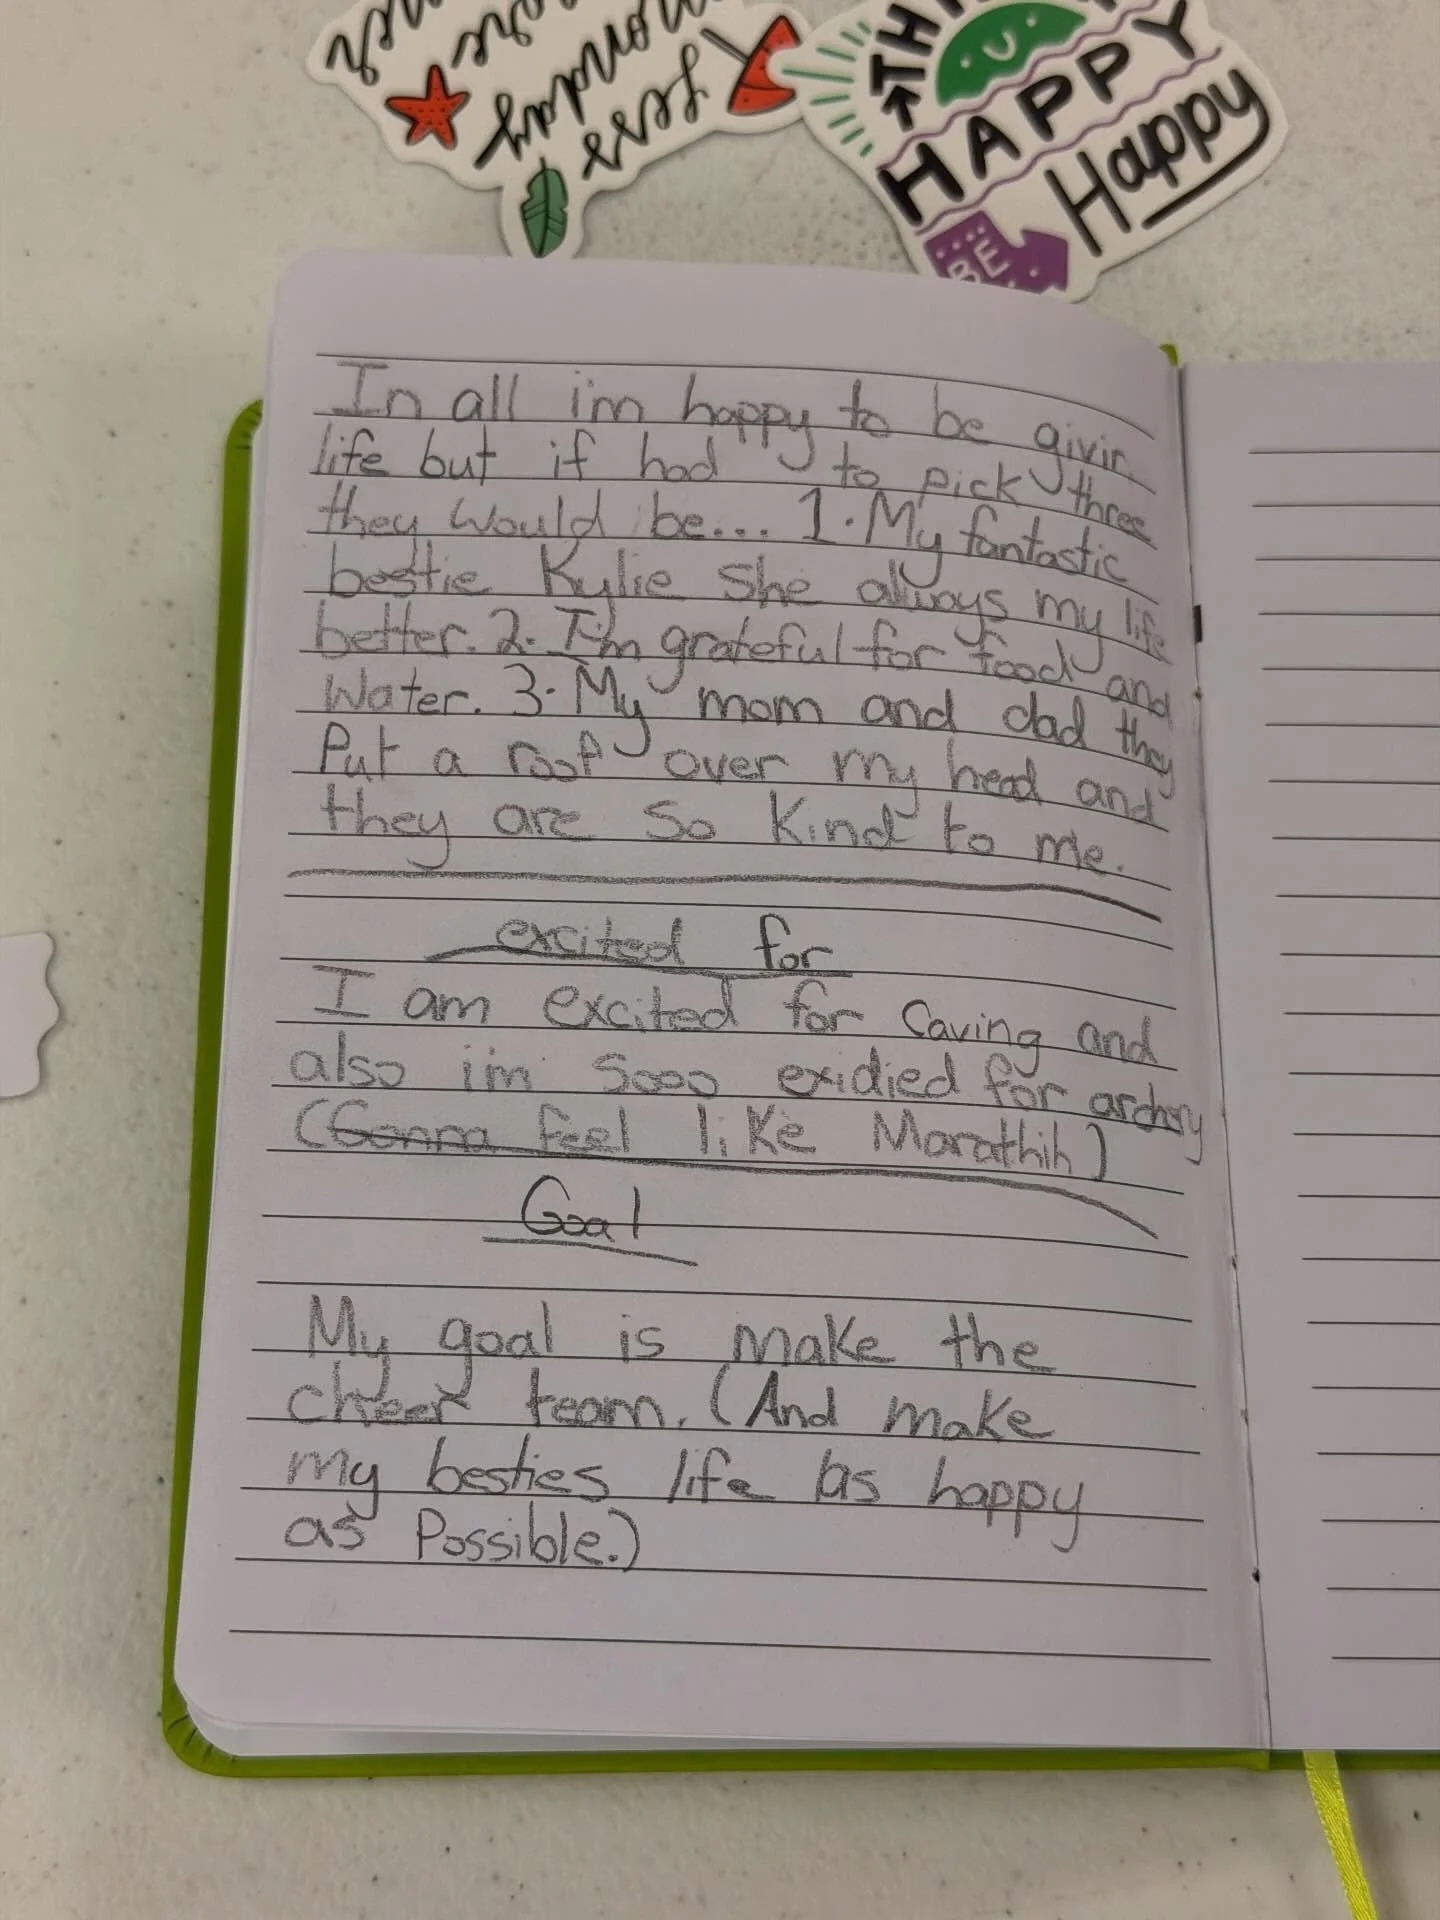 less
monday
more
THINK
HAPPY
BE
Happy
In all i'm happy to be givin
life but if had to pick three
they would be... 1. My fantastic
bestie Kylie she always my life
better. 2. I'm grateful for food and
Water. 3. My mom and dad they
Put a roof over my head and
they are so kind to me.
excited for
I am excited for Caving and
also im sooo exidied for archery
(Gonna feel like Marathih)
Goal
My goal is make the
cheer team. (And make
my besties life as happy
as Possible.)